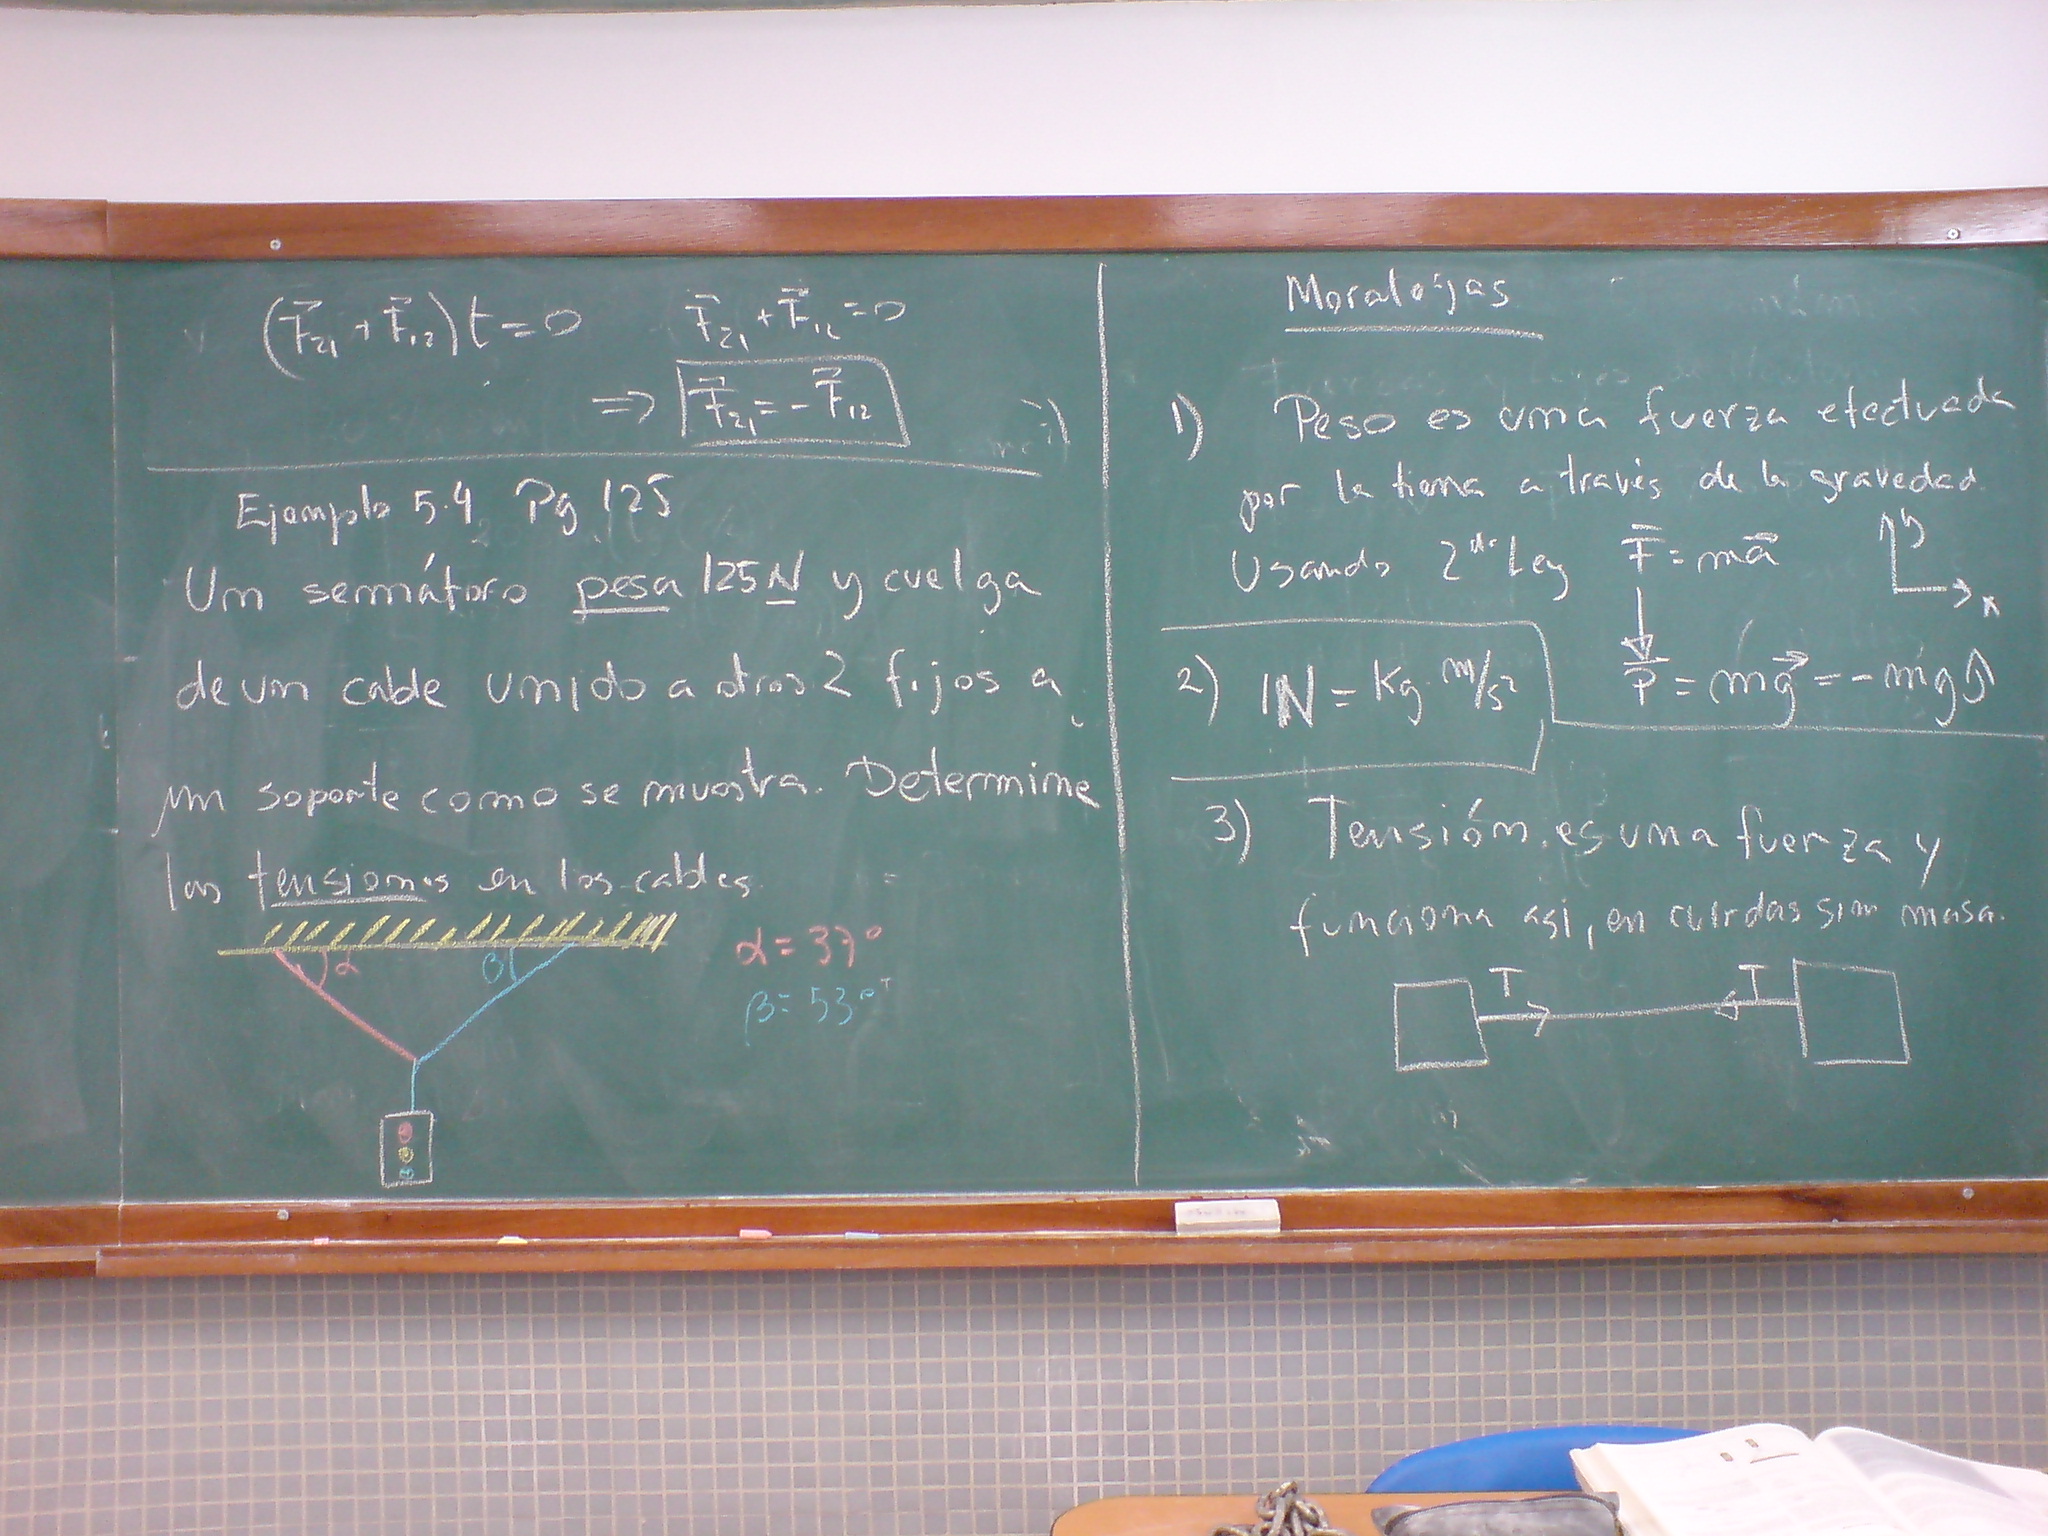 (F⃗₂₁ + F⃗₁₂)t = 0   F⃗₂₁ + F⃗₁₂ = 0
⇒ F⃗₂₁ = - F⃗₁₂
Ejemplo 5.4 Pg 125
Un semáforo pesa 125 N y cuelga
de un cable unido a otros 2 fijos a
un soporte como se muestra. Determine
las tensiones en los cables.
α β
α = 37°
β = 53°
Moralejas
1) Peso es una fuerza efectuada
por la tierra a través de la gravedad.
Usando 2da Ley F⃗ = ma⃗
y
x
P⃗ = mg⃗ = -mgĵ
2) 1N = Kg m/s²
3) Tensión es una fuerza y
funciona asi, en cuerdas sin masa.
T T